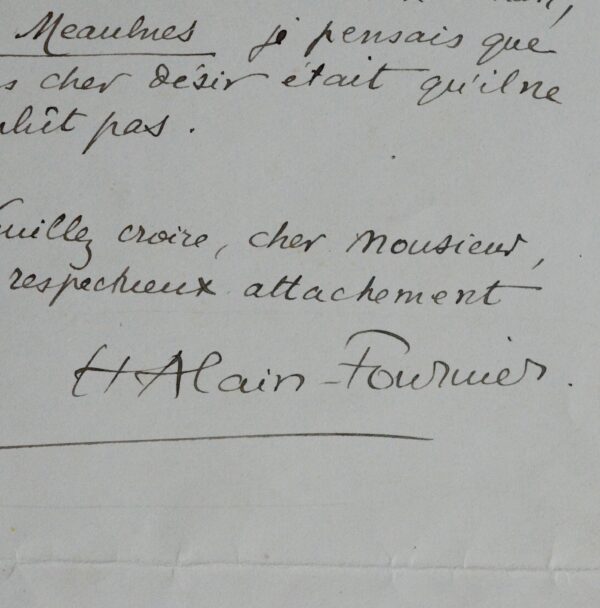 Meaulnes je pensais que
s cher désir était qu'il ne
plût pas.
uillez croire, cher Monsieur,
respectueux attachement
H Alain-Fournier.